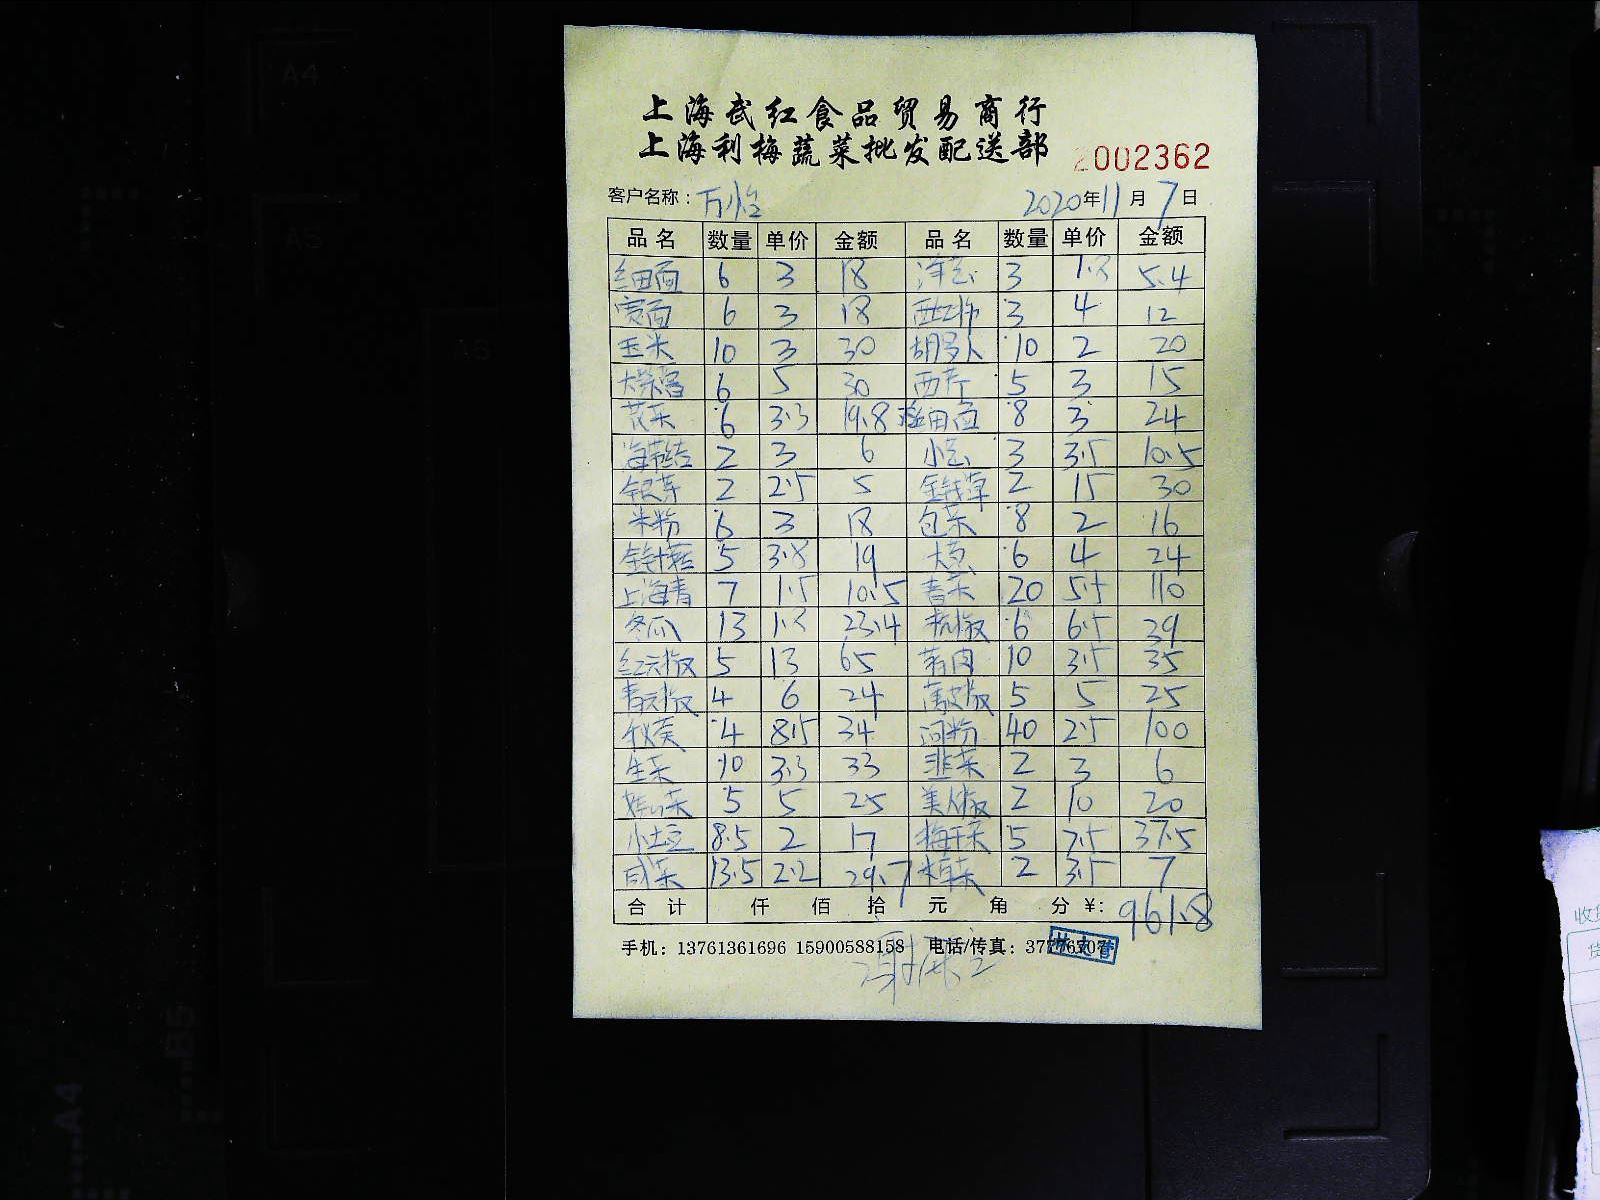 上海武红食品贸易商行
上海利梅蔬菜批发配送部
2002362
客户名称：万怡 2020年11月7日
品名 数量 单价 金额 品名 数量 单价 金额
细面 6 3 18 洋芋 3 1.8 5.4
宽面 6 3 18 西红柿 3 4 12
玉米 10 3 30 胡罗卜 10 2 20
6 5 30 西芹 5 3 15
6 3.3 19.8 细面 8 3 24
海带结 2 3 6 3 3.5 10.5
银芽 2 2.5 5 金钱草 2 15 30
米粉 6 3 18 包菜 8 2 16
金针菇 5 3.8 19 6 4 24
上海青 7 1.5 10.5 20 5.5 110
冬瓜 13 1.8 23.4 杭椒 6 6.5 39
红元椒 5 13 65 10 3.5 35
青元椒 4 6 24 薄皮椒 5 5 25
秋葵 4 8.5 34 河粉 40 2.5 100
生菜 10 3.3 33 韭菜 2 3 6
娃娃菜 5 5 25 美人椒 2 10 20
小土豆 8.5 2 17 梅干菜 5 7.5 37.5
咸菜 13.5 2.2 29.7 2 3.5 7
合计 仟 佰 拾 元 角 分 ¥: 961.8
手机：13761361696 15900588158 电话/传真：37776707